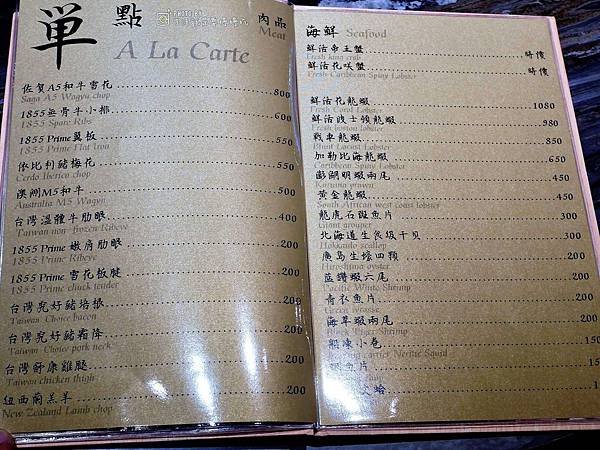 單點
A La Carte
肉品
Meat
佐賀A5和牛雪花 800
Saga A5 Wagyu chop
1855無骨牛小排 600
1855 Spare Ribs
1855 Prime翼板 550
1855 Prime Flat Iron
依比利豬梅花 550
Cerdo Iberico chop
澳洲M5和牛 500
Australia M5 Wagyu
台灣溫體牛肋眼 400
Taiwan non-frozen Ribeye
1855 Prime 嫩肩肋眼 200
1855 Prime Ribeye
1855 Prime 雪花板腱 200
1855 Prime chuck tender
台灣究好豬培根 200
Taiwan Choice bacon
台灣究好豬霜降 200
Taiwan Choice pork neck
台灣舒康雞腿 200
Taiwan chicken thigh
紐西蘭羔羊 200
New Zealand Lamb chop
海鮮 Seafood
鮮活帝王蟹 時價
Fresh king crab
鮮活花咲蟹 時價
Fresh Caribbean Spiny Lobster
鮮活花龍蝦 1080
Fresh Coral Lobster
鮮活波士頓龍蝦 980
Fresh boston lobster
戰車龍蝦 850
Blunt Locust Lobster
加勒比海龍蝦 650
Caribbean Spiny Lobster
澎湖明蝦兩尾 450
Kuruma prawn
黃金龍蝦 450
South African west coast lobster
龍虎石斑魚片 300
Giant grouper
北海道生食級干貝 300
Hokkaido scallop
廣島生蠔四顆 200
Hiroshima oyster
藍鑽蝦六尾 200
Pacific White Shrimp
青衣魚片 200
Green wrasse
海草蝦兩尾 200
Black Tiger Shrimp
凍小卷 150
Neritic Squid
魚片 150
蛤